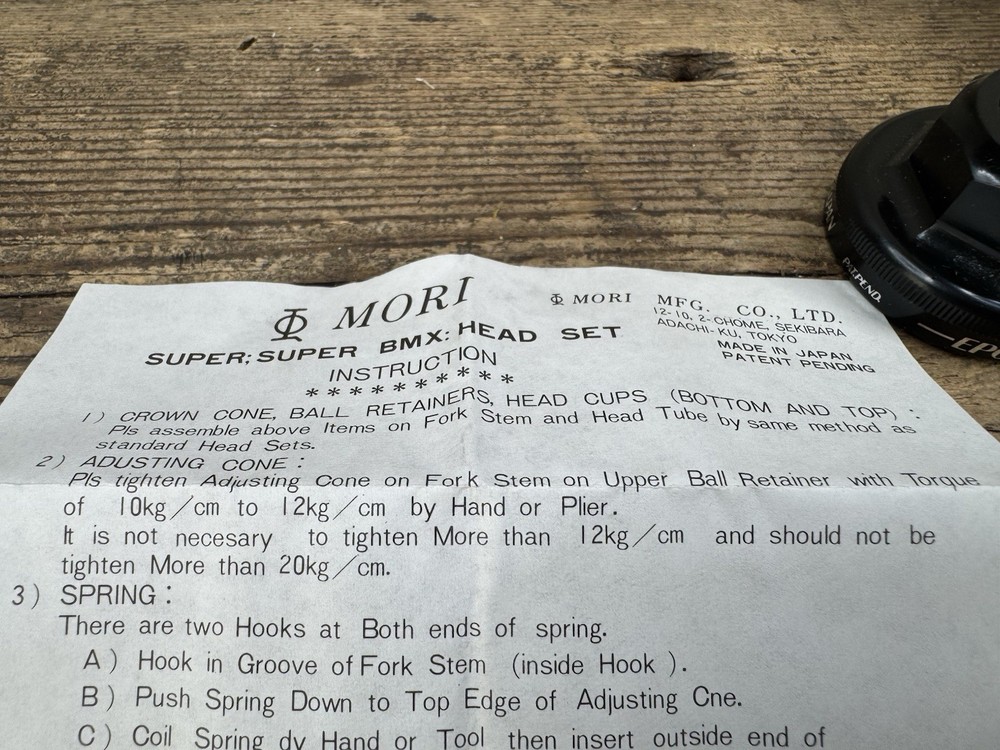 Φ MORI
SUPER; SUPER BMX: HEAD SET
INSTRUCTION
**********
Φ MORI MFG. CO., LTD.
12-10, 2-CHOME, SEKIBARA
ADACHI-KU, TOKYO
MADE IN JAPAN
PATENT PENDING
1) CROWN CONE, BALL RETAINERS, HEAD CUPS (BOTTOM AND TOP) :
Pls assemble above Items on Fork Stem and Head Tube by same method as
standard Head Sets.
2) ADUSTING CONE :
Pls tighten Adjusting Cone on Fork Stem on Upper Ball Retainer with Torque
of 10kg/cm to 12kg/cm by Hand or Plier.
It is not necesary to tighten More than 12kg/cm and should not be
tighten More than 20kg/cm.
3) SPRING :
There are two Hooks at Both ends of spring.
A) Hook in Groove of Fork Stem (inside Hook ).
B) Push Spring Down to Top Edge of Adjusting Cne.
C) Coil Spring dy Hand or Tool then insert outside end of
PAT.PEND.